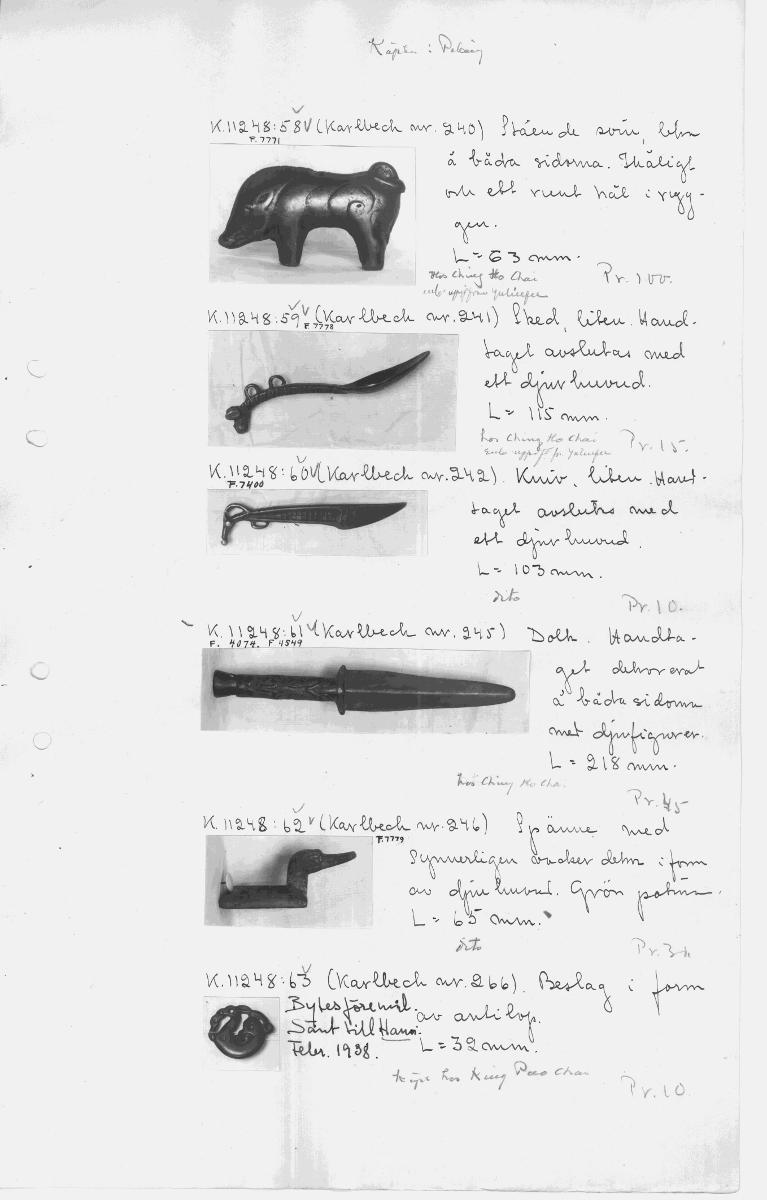 Köpta i Peking
K.11248:58 V (Karlbeck nr. 240) Stående svin, dekor
F.7771
å båda sidorna. Ihåligt
och ett runt hål i ryg-
gen.
L = 63 mm.
Hos Ching Ho Chai Pr. 100.
K.11248:59 V (Karlbeck nr. 241) Sked, liten. Hand-
F.7778
taget avslutas med
ett djurhuvud.
L = 115 mm.
hos Ching Ho Chai Pr. 15.
K.11248:60 V (Karlbeck nr. 242). Kniv, liten. Hand-
F.7400
taget avslutas med
ett djurhuvud.
L = 103 mm.
dito Pr. 10.
K.11248:61 V (Karlbeck nr. 245) Dolk. Handta-
F. 4074. F 4549
get dekorerat
å båda sidorna
med djurfigurer.
L = 218 mm.
hos Ching Ho Chai Pr. 45
K.11248:62 V (Karlbeck nr. 246) Spänne med
F.7779
synnerligen vacker dekor i form
av djurhuvud. Grön patina.
L = 65 mm.
dito Pr.
K.11248:63 (Karlbeck nr. 266). Beslag i form
Bytesföremål. av antilop.
Sänt till Hanoi.
Febr. 1938. L = 32 mm.
köpt hos King Pao Chai Pr. 10